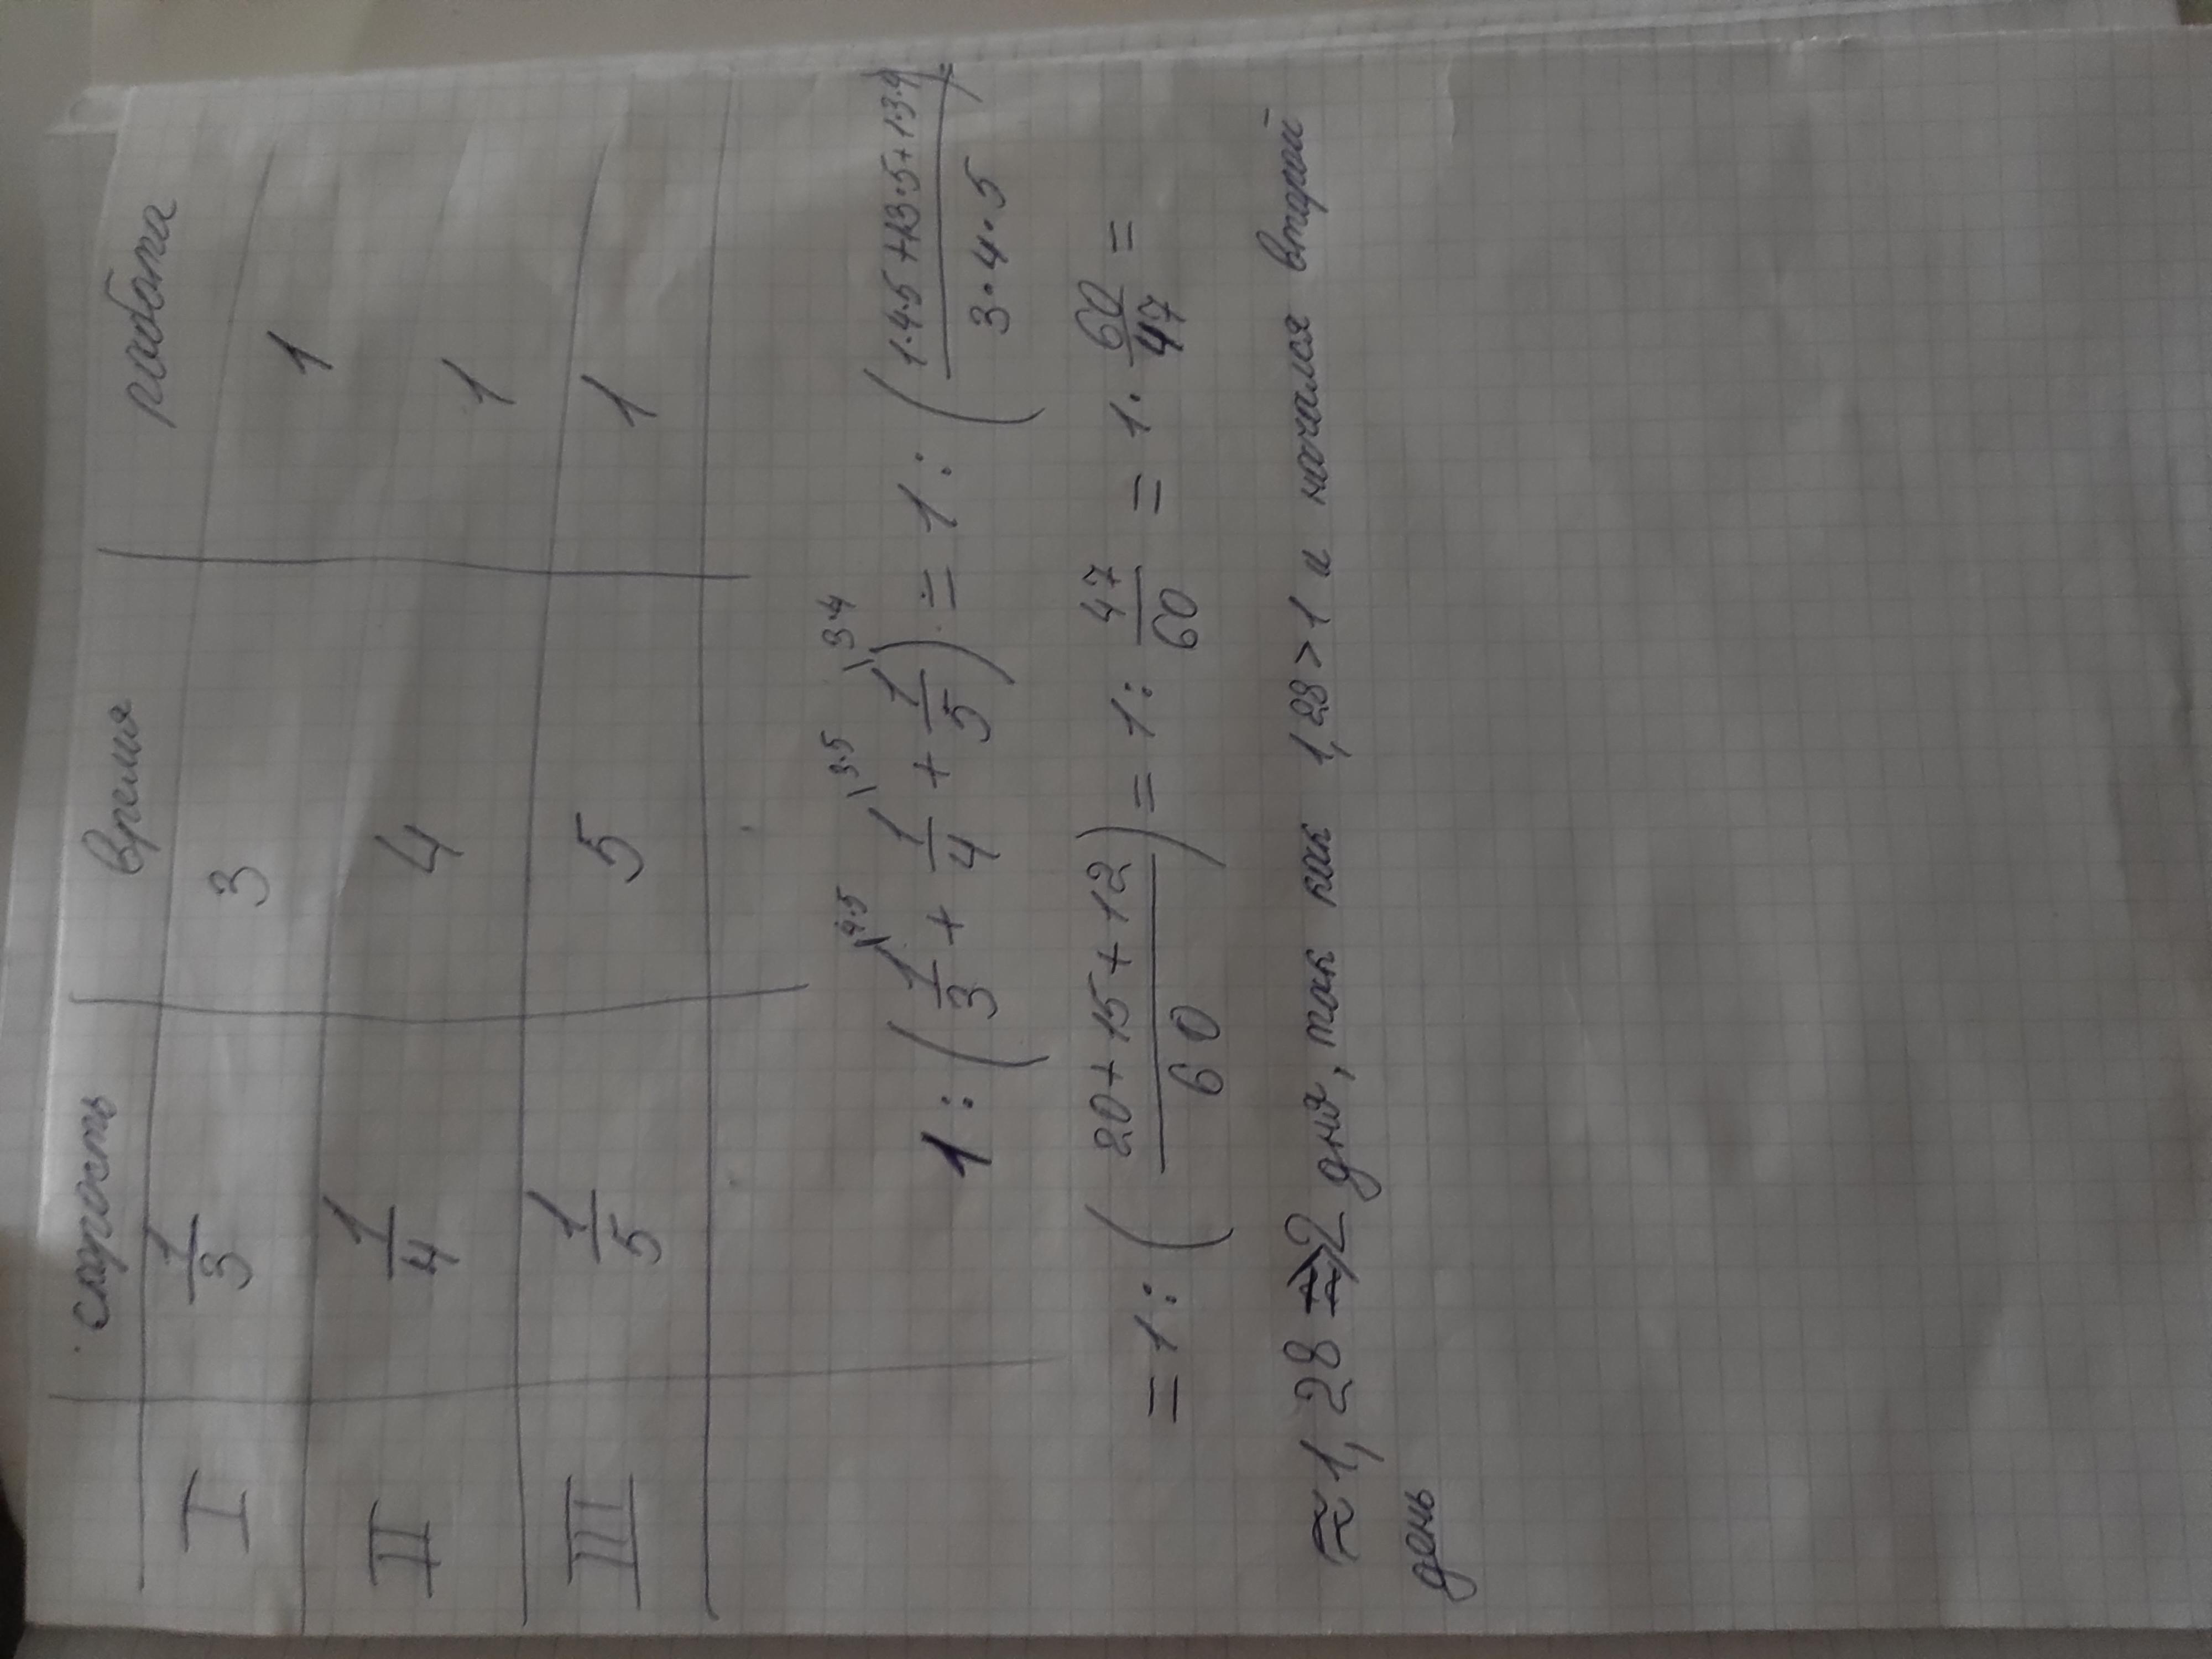 скорость время работа
I 1/3 3 1
II 1/4 4 1
III 1/5 5 1
1 : (1/3 \4·5 + 1/4 \3·5 + 1/5 \3·4) = 1 : (1·4·5 + 1·3·5 + 1·3·4 / 3·4·5) =
= 1 : (20+15+12 / 60) = 1 : 47/60 = 1 · 60/47 =
≈ 1,28 ≈ 2 дня, так как 1,28 > 1 и начался второй
день